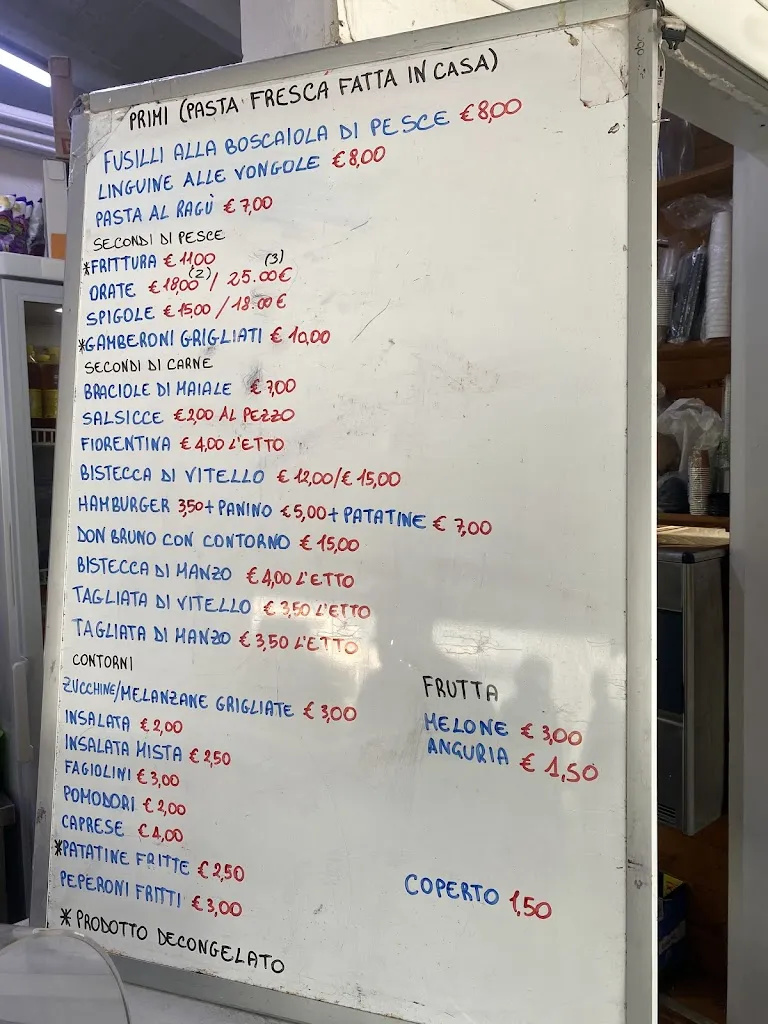 PRIMI (PASTA FRESCA FATTA IN CASA)
FUSILLI ALLA BOSCAIOLA DI PESCE € 8,00
LINGUINE ALLE VONGOLE € 8,00
PASTA AL RAGÙ € 7,00
SECONDI DI PESCE
*FRITTURA € 11,00
ORATE € 18,00 (2) / 25.00 € (3)
SPIGOLE € 15,00 / 18.00 €
*GAMBERONI GRIGLIATI € 10,00
SECONDI DI CARNE
BRACIOLE DI MAIALE € 7,00
SALSICCE € 2,00 AL PEZZO
FIORENTINA € 4,00 L'ETTO
BISTECCA DI VITELLO € 12,00/€ 15,00
HAMBURGER 3,50 + PANINO € 5,00 + PATATINE € 7,00
DON BRUNO CON CONTORNO € 15,00
BISTECCA DI MANZO € 4,00 L'ETTO
TAGLIATA DI VITELLO € 3,50 L'ETTO
TAGLIATA DI MANZO € 3,50 L'ETTO
CONTORNI
ZUCCHINE/MELANZANE GRIGLIATE € 3,00
INSALATA € 2,00
INSALATA MISTA € 2,50
FAGIOLINI € 3,00
POMODORI € 2,00
CAPRESE € 4,00
*PATATINE FRITTE € 2,50
PEPERONI FRITTI € 3,00
* PRODOTTO DECONGELATO
FRUTTA
MELONE € 3,00
ANGURIA € 1,50
COPERTO 1,50